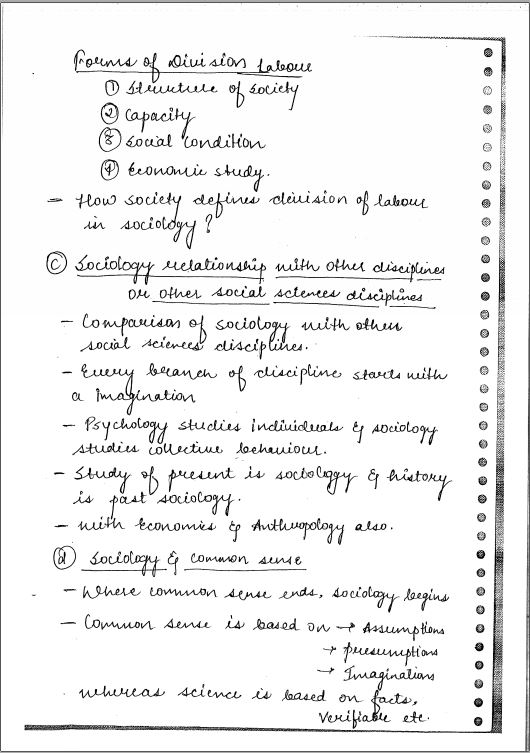 Forms of Division Labour
① Structure of Society
② Capacity
③ Social Condition
④ Economic study.
- How society defines division of labour
in sociology?
Ⓒ Sociology relationship with other disciplines
or other social sciences disciplines
- Comparison of sociology with other
social sciences disciplines.
- Every branch of discipline starts with
a Imagination
- Psychology studies individuals & sociology
studies collective behaviour.
- Study of present is sociology & history
is past sociology.
- with Economics & Anthropology also.
ⓓ Sociology & common sense
- Where common sense ends, sociology begins
- Common sense is based on → Assumptions
→ presumptions
→ Imaginations
whereas science is based on facts,
verifiable etc.